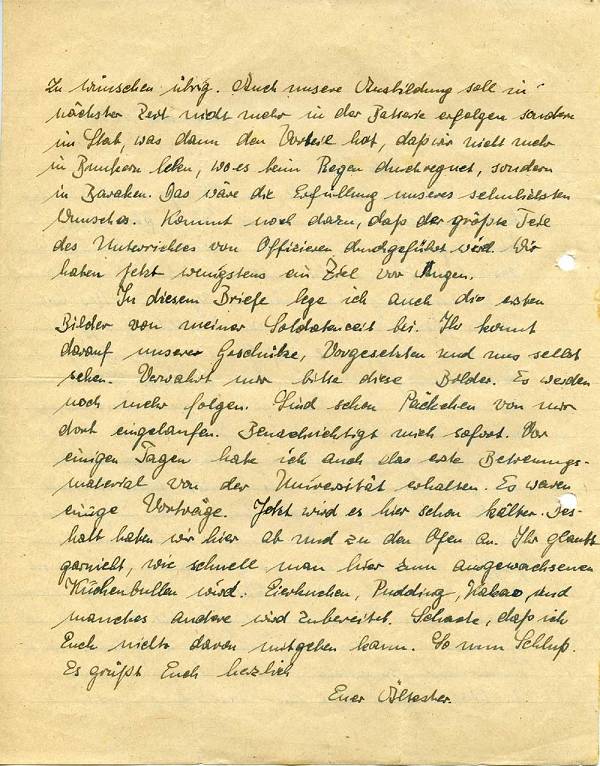 zu wünschen übrig. Auch unsere Ausbildung soll in
nächster Zeit nicht mehr in der Batterie erfolgen sondern
im Stab, was dann den Vorteil hat, daß wir nicht mehr
in Bunkern leben, wo es beim Regen durchregnet, sondern
in Baraken. Das wäre die Erfüllung unseres sehnlichsten
Wunsches. Kommt noch dazu, daß der größte Teil
des Unterrichtes von Offizieren durchgeführt wird. Wir
haben jetzt wenigstens ein Ziel vor Augen.
In diesem Briefe lege ich auch die ersten
Bilder von meiner Soldatenzeit bei. Ihr könnt
darauf unsere Geschütze, Vorgesetzten und uns selbst
sehen. Verwahrt mir bitte diese Bilder. Es werden
noch mehr folgen. Sind schon Päckchen von mir
dort eingelaufen. Benachrichtigt mich sofort. Vor
einigen Tagen habe ich auch das erste Betreuungs-
material von der Universität erhalten. Es waren
einige Vorträge. Jetzt wird es hier schon kälter. Des-
halb haben wir hier ab und zu den Ofen an. Ihr glaubt
garnicht, wie schnell man hier zum ausgewachsenen
Küchenbullen wird. Eierkuchen, Pudding, Kakao und
manches andere wird zubereitet. Schade, daß ich
Euch nichts davon mitgeben kann. So nun Schluß.
Es grüßt Euch herzlich
Euer Ältester.